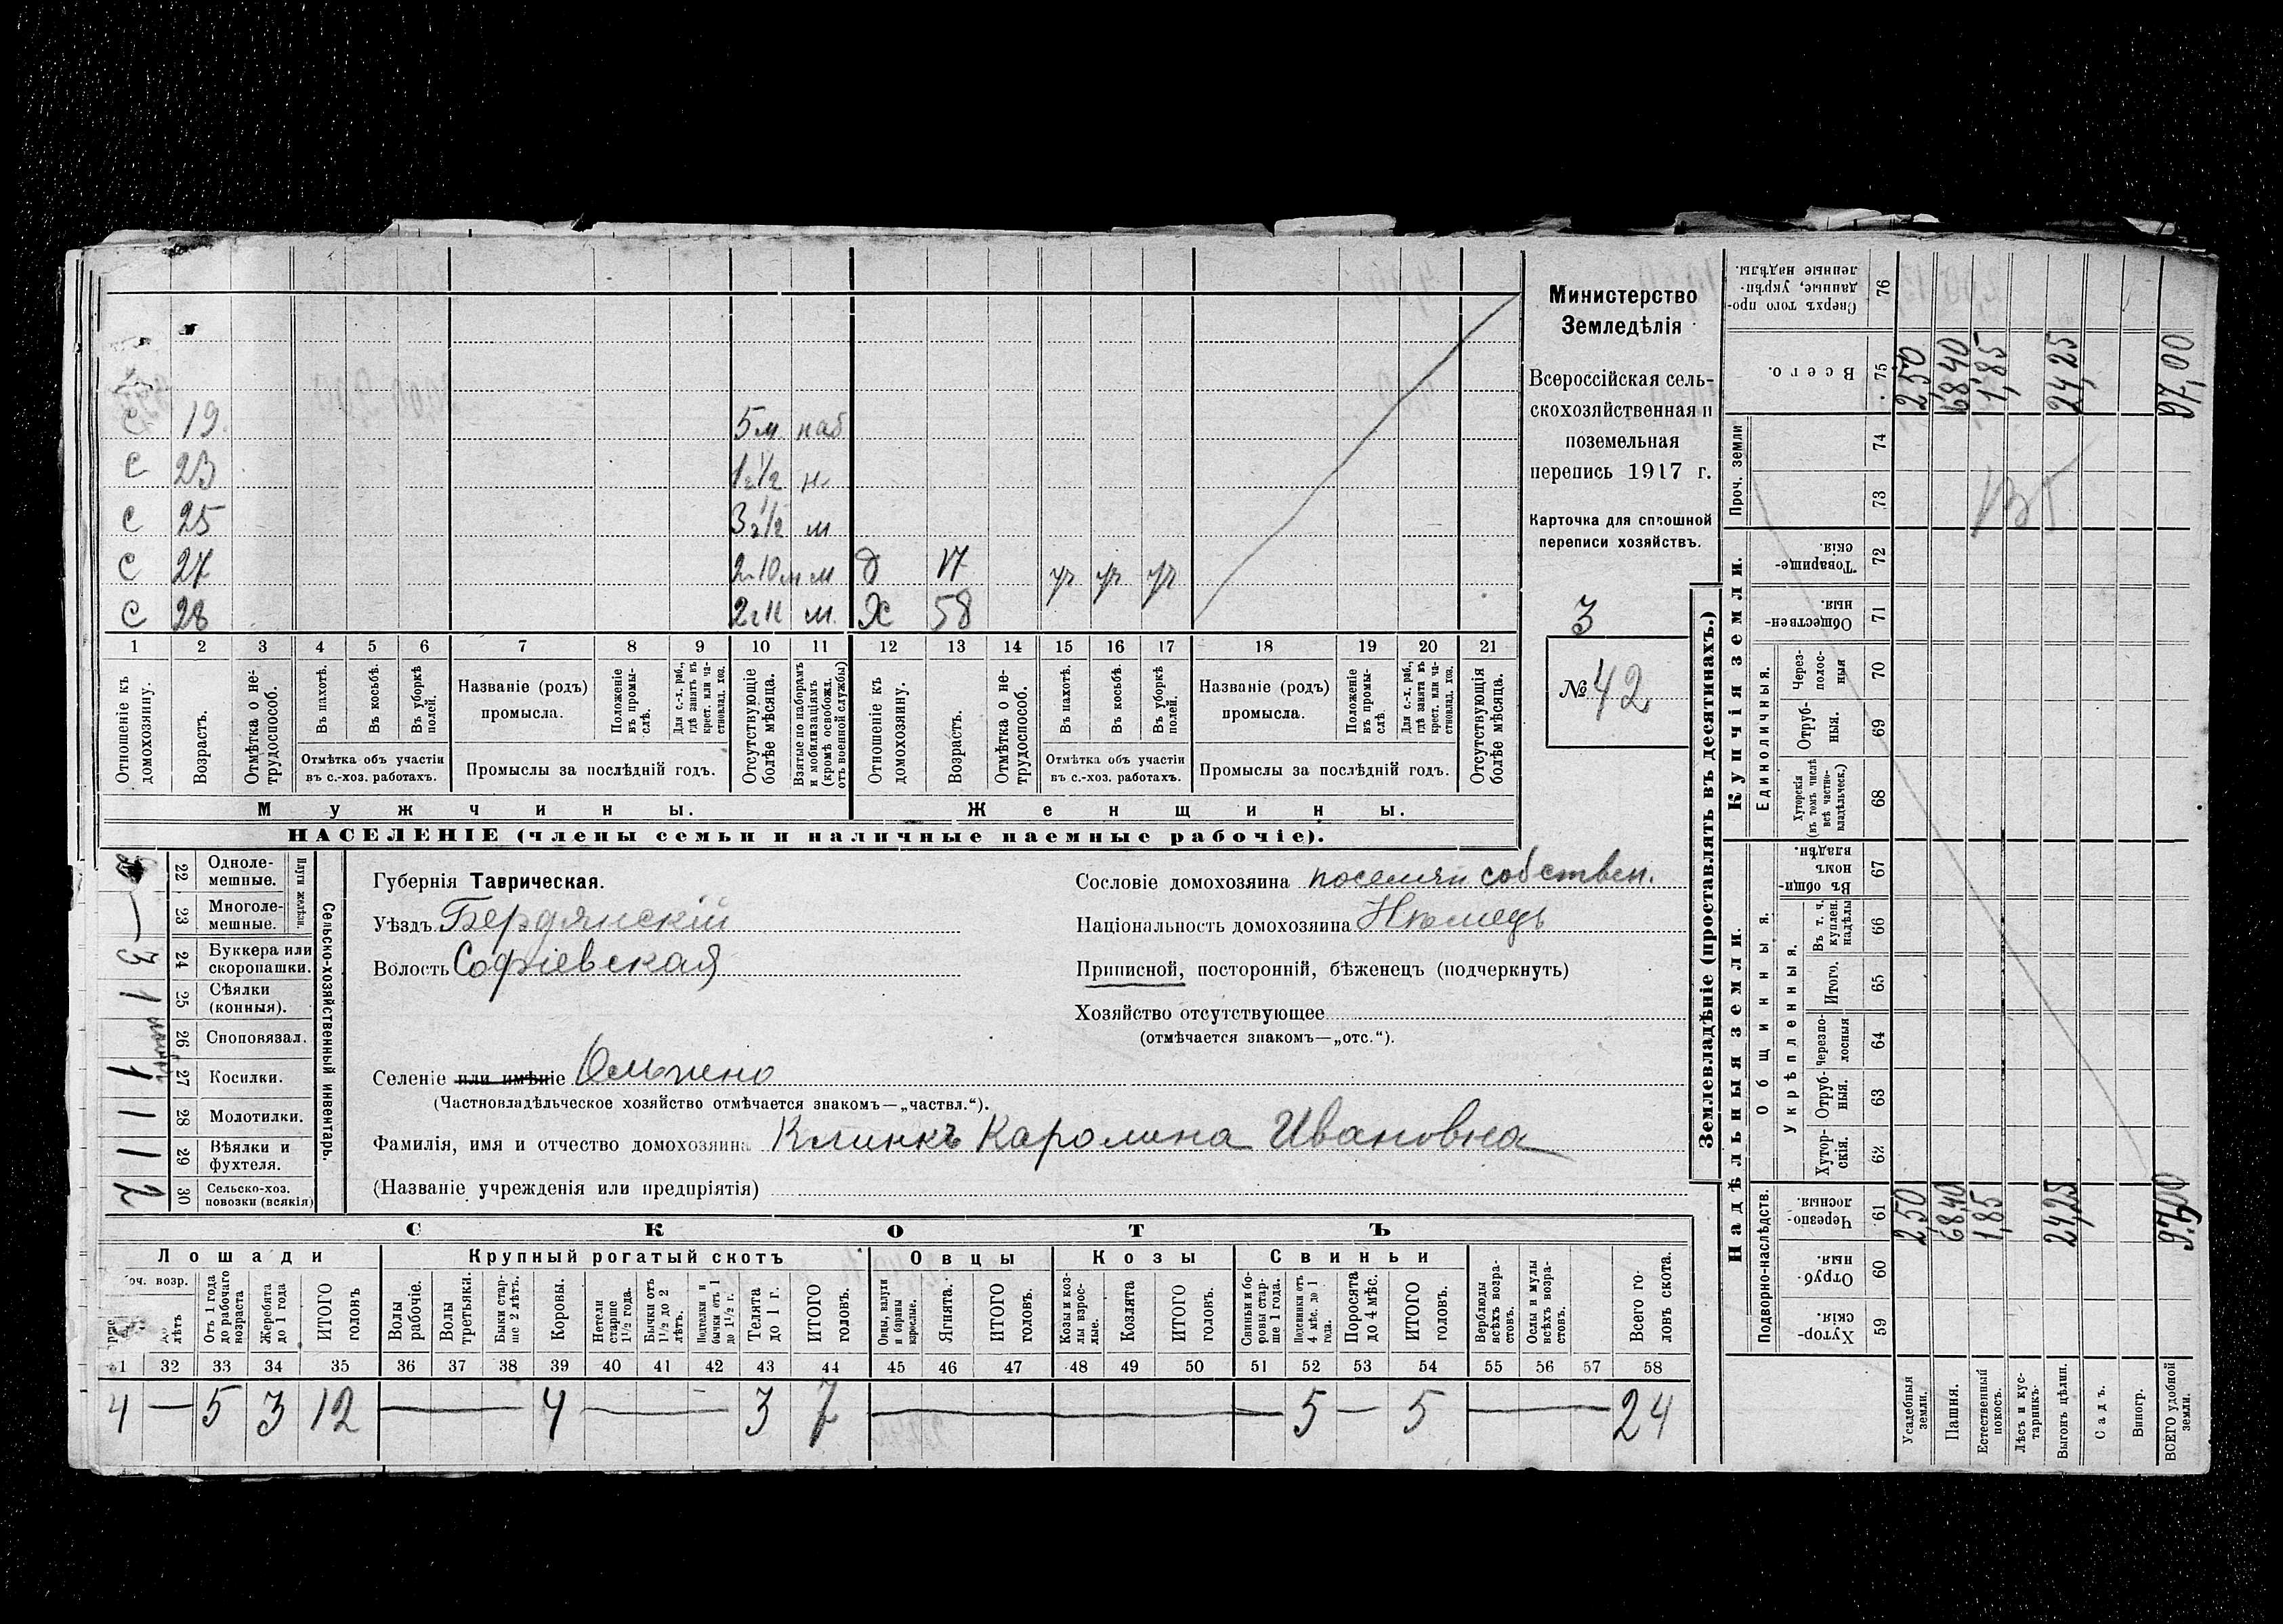 с 19 5 м. наб
с 23 1 г 1/2 м
с 25 3 г 1/2 м
с 27 2 г 10 м м д 17 ур ур ур
с 28 2 г 11 м. Х 58
1 2 3 4 5 6 7 8 9 10 11 12 13 14 15 16 17 18 19 20 21
Отношеніе къ домохозяину.
Возрастъ.
Отмѣтка о не-трудоспособ.
Въ пахотѣ.
Въ косьбѣ.
Въ уборкѣ полей.
Отмѣтка объ участіи въ с.-хоз. работахъ.
Названіе (родъ) промысла.
Положеніе въ промы-слѣ.
Для с.-х. раб., гдѣ занятъ въ крест. или ча-стновлад. хоз.
Промыслы за послѣдній годъ.
Отсутствующіе болѣе мѣсяца.
Взятые по наборамъ и мобилизаціямъ (кромѣ освобожд. отъ военной службы)
Отношеніе къ домохозяину.
Возрастъ.
Отмѣтка о не-трудоспособ.
Въ пахотѣ.
Въ косьбѣ.
Въ уборкѣ полей.
Отмѣтка объ участіи въ с.-хоз. работахъ.
Названіе (родъ) промысла.
Положеніе въ промы-слѣ
Для с.-х. раб., гдѣ занята въ крест. или ча-стновлад. хоз.
Промыслы за послѣдній годъ.
Отсутствующія болѣе мѣсяца.
Мужчины.
Женщины.
НАСЕЛЕНІЕ (члены семьи и наличные наемные рабочіе).
Министерство
Земледѣлія
Всероссійская сель-
скохозяйственная и
поземельная
перепись 1917 г.
Карточка для сплошной
переписи хозяйствъ.
3
№ 42
Сельско-хозяйственный инвентарь.
Плуги желѣзн.
22 Одноле-мешные.
— 23 Многоле-мешные.
3 24 Буккера или скоропашки.
1 25 Сѣялки (конныя).
26 Сноповязал.
1 27 Косилки.
1 28 Молотилки.
1 29 Вѣялки и фухтеля.
2 30 Сельско-хоз. повозки (всякія)
Губернія Таврическая.
Уѣздъ Бердянскій
Волость Софіевская
Селеніе или имѣніе Ольгино
(Частновладѣльческое хозяйство отмѣчается знакомъ—„частвл.“).
Фамилія, имя и отчество домохозяина Клинкъ Каролина Ивановна
(Названіе учрежденія или предпріятія)
Сословіе домохозяина поселян собствен.
Національность домохозяина Нѣмецъ
Приписной, посторонній, бѣженецъ (подчеркнуть)
Хозяйство отсутствующее
(отмѣчается знакомъ—„отс.“).
СКОТЪ
Лошади Крупный рогатый скотъ Овцы Козы Свиньи
возр.
лѣтъ
Отъ 1 года до рабочаго возраста
Жеребята до 1 года
ИТОГО головъ
Волы рабочіе.
Волы третьяки.
Быки стар-ше 2 лѣтъ.
Коровы.
Нетели старше 1 1/2 года.
Бычки отъ 1 1/2 до 2 лѣтъ.
Подтелки и бычки отъ 1 до 1 1/2 г.
Телята до 1 г.
ИТОГО головъ.
Овцы, валухи и бараны взрослые.
Ягнята.
ИТОГО головъ.
Козы и коз-лы взрос-лые.
Козлята
ИТОГО головъ.
Свиньи и бо-ровы стар-ше 1 года.
Подсвинки отъ 4 мѣс. до 1 года.
Поросята до 4 мѣс.
ИТОГО головъ.
Верблюды всѣхъ возра-стовъ.
Ослы и мулы всѣхъ возра-стовъ.
Всего го-ловъ скота.
32 33 34 35 36 37 38 39 40 41 42 43 44 45 46 47 48 49 50 51 52 53 54 55 56 57 58
4 — 5 3 12 — 4 — 3 7 — 5 — 5 — 24
Землевладѣніе (проставлять въ десятинахъ.)
Сверхъ того про-данные, укрѣп-ленные надѣлы. 76
Всего. 75 2,50 68,40 1,85 24,25 97,00
Проч. земли 74
73
Купчія земли.
Товарище-скія. 72
Обществен-ныя. 71
Единоличныя.
Через-полос-ныя 70
Отруб-ныя. 69
Хуторскія (въ томъ числѣ всѣ частно-владѣльческ.) 68
Надѣльныя земли.
Общинныя.
Въ общин-номъ владѣн. 67
Укрѣпленныя.
Въ т. ч. куплен. надѣлы 66
Итого. 65
Черезпо-лосныя 64
Отруб-ныя. 63
Хутор-скія. 62
Подворно-наслѣдств.
Черезпо-лосныя. 61 2,50 68,40 1,85 24,25 97,00
Отруб-ныя. 60
Хутор-скія. 59
Усадебныя земли.
Пашня.
Естественный покосъ.
Лѣсъ и кус-тарникъ.
Выгонъ цѣлин.
Садъ.
Виногр.
ВСЕГО удобной земли.